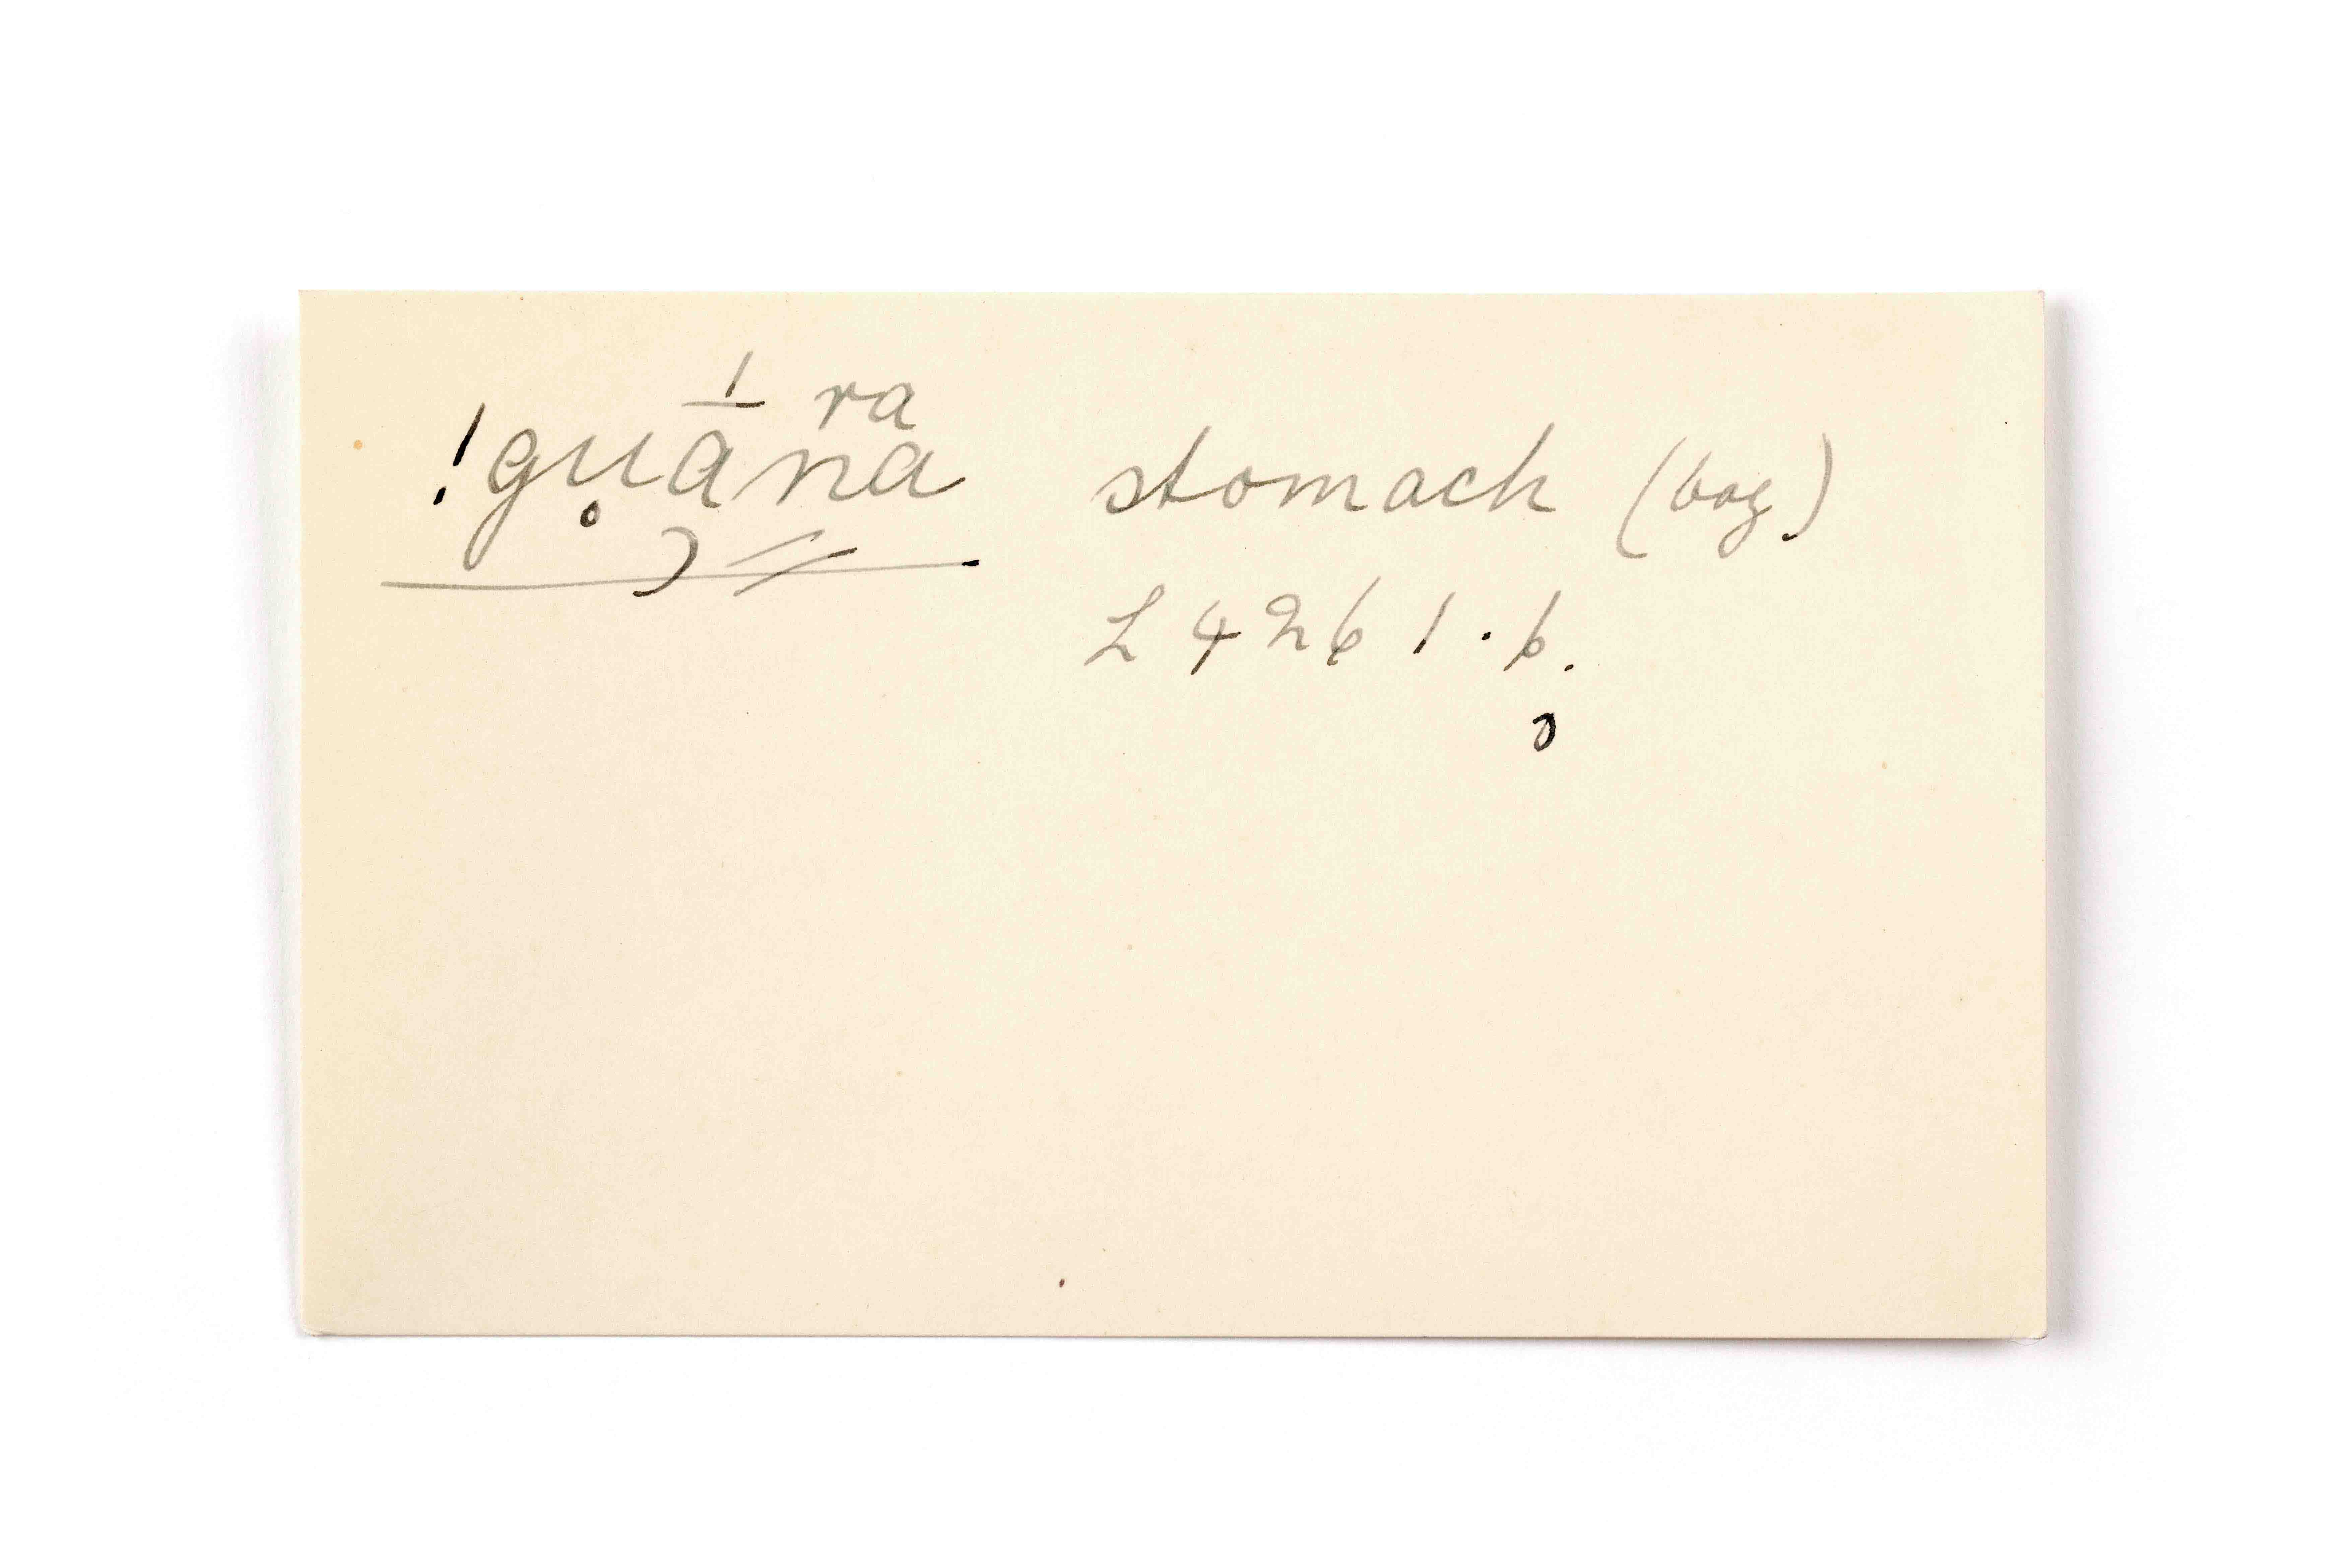 ra
!gu̥ā́na stomach (bag)
L 4261.6.